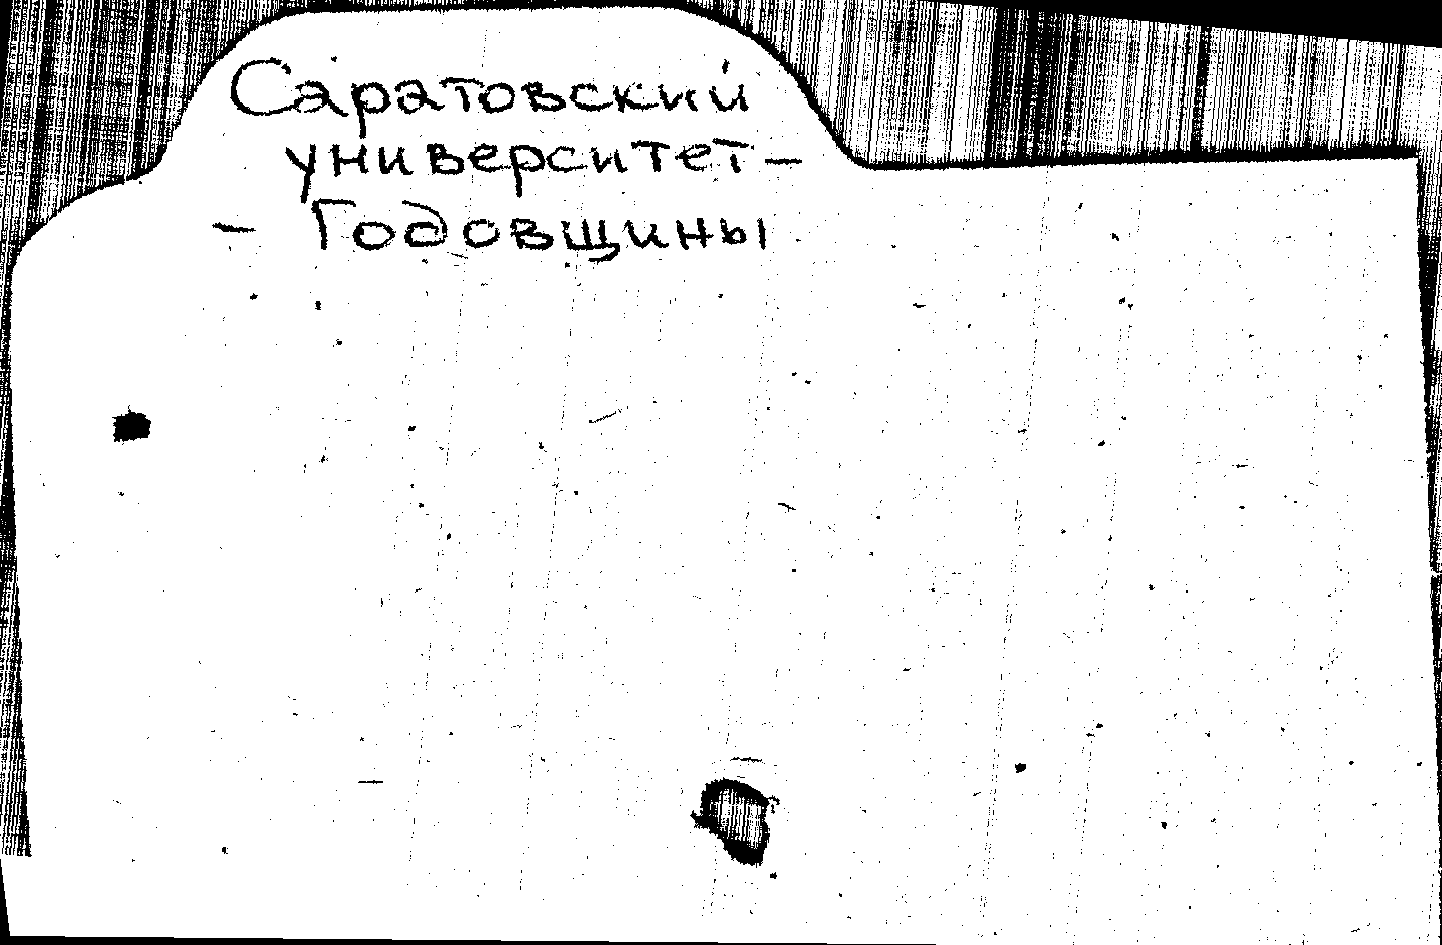 Саратовский
университет –
– Годовщины